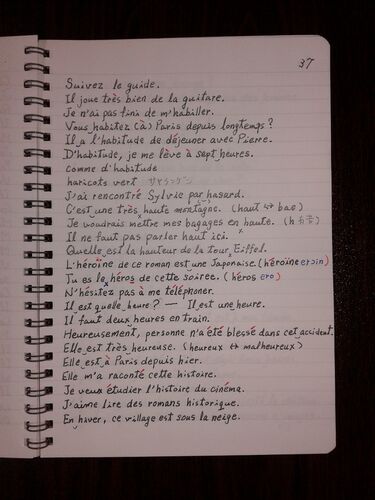 37
Suivez le guide.
Il joue très bien de la guitare.
Je n'ai pas fini de m'habiller.
Vous habitez (à) Paris depuis longtemps?
Il a l'habitude de déjeuner avec Pierre.
D'habitude, je me lève à sept heures.
comme d'habitude
haricots vert サヤインゲン
J'ai rencontré Sylvie par hasard.
C'est une très haute montagne. (haut ↔ bas)
Je voudrais mettre mes bagages en haute. (h
Il ne faut pas parler haut ici.
Quelle est la hauteur de la tour Eiffel.
L'héroïne de ce roman est une Japonaise. (héroïne
Tu es le héros de cette soiree. (héros ero)
N'hésitez pas à me téléphoner.
Il est quelle heure? — Il est une heure.
Il faut deux heures en train.
Heureusement, personne n'a été blessé dans cet accident.
Elle est très heureuse. (heureux ↔ malheureux)
Elle est à Paris depuis hier.
Elle m'a raconté cette histoire.
Je veux étudier l'histoire du cinéma.
J'aime lire des romans historique.
En hiver, ce village est sous la neige.